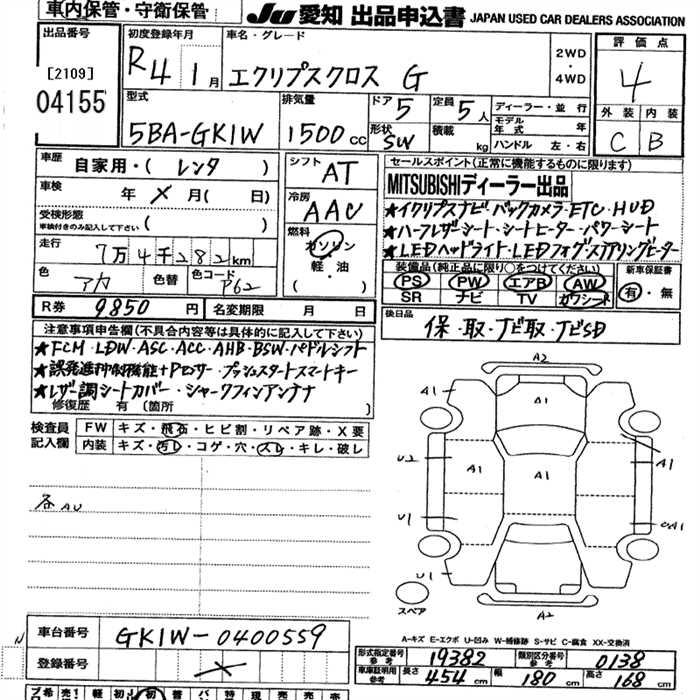 車内保管・守衛保管
JU 愛知 出品申込書 JAPAN USED CAR DEALERS ASSOCIATION
出品番号
[2109]
04155
初度登録年月
R4 1月
車名・グレード
エクリプスクロス G
2WD
・
4WD
評価点
4
外装 内装
C B
型式
5BA-GK1W
排気量
1500cc
ドア 5
形状 SW
定員 5人
積載 kg
ディーラー・並行
モデル年式 年
ハンドル 左・右
車歴 自家用・( レンタ )
車検 年 月( 日)
受検形態
車検付きのみ記入して下さい ( )
走行 7万4千282km
色 アカ 色替 色コード P62
シフト AT
冷房 AAC
燃料
ガソリン
・
軽・油
( )
セールスポイント(正常に機能するものに限ります)
MITSUBISHIディーラー出品
★イクリプスナビ・バックカメラ・ETC・HUD
★ハーフレザーシート・シートヒーター・パワーシート
★LEDヘッドライト・LEDフォグ・ステアリングヒーター
装備品(純正品に限り○をつけてください)
PS PW エアB AW
SR ナビ TV カワシート
新車保証書
有・無
R券 9850円 名変期限 月 日
後日品
保・取・ナビ取・ナビSD
注意事項申告欄(不具合内容等は具体的に記入して下さい)
★FCM・LDW・ASC・ACC・AHB・BSW・パドルシフト
★誤発進抑制機能+Pロサー・プッシュスタートスマートキー
★レザー調シートカバー・シャークフィンアンテナ
修復歴 有(箇所 )
検査員記入欄
FW キズ・飛石・ヒビ割・リペア跡・X要
内装 キズ・汚レ・コゲ・穴・スレ・キレ・破レ
各AU
A2
A1 A1 A1
U2 A1 A1 A1
U1
U1
A2
スペア
A-キズ E-エクボ U-凹み W-補修跡 S-サビ C-腐食 XX-交換済
車台番号 GK1W-0400559
登録番号
N
形式指定番号 参考 19382 類別区分番号 参考 0138
車庫証明用 参考 長さ 454cm 幅 180cm 高さ 168cm